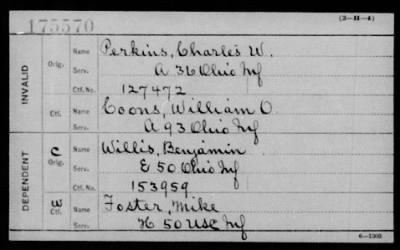 175570
(3-H-4)
INVALID
Orig.
Name Perkins, Charles W.
Serv. A 36 Ohio Inf
Ctf. No. 127472
Ctf.
Name Coons, William O.
Serv. A 93 Ohio Inf
DEPENDENT
C
Orig.
Name Willis, Benjamin
Serv. E 50 Ohio Inf
Ctf. No. 153959
W
Ctf.
Name Foster, Mike
Serv. H 50 USC Inf